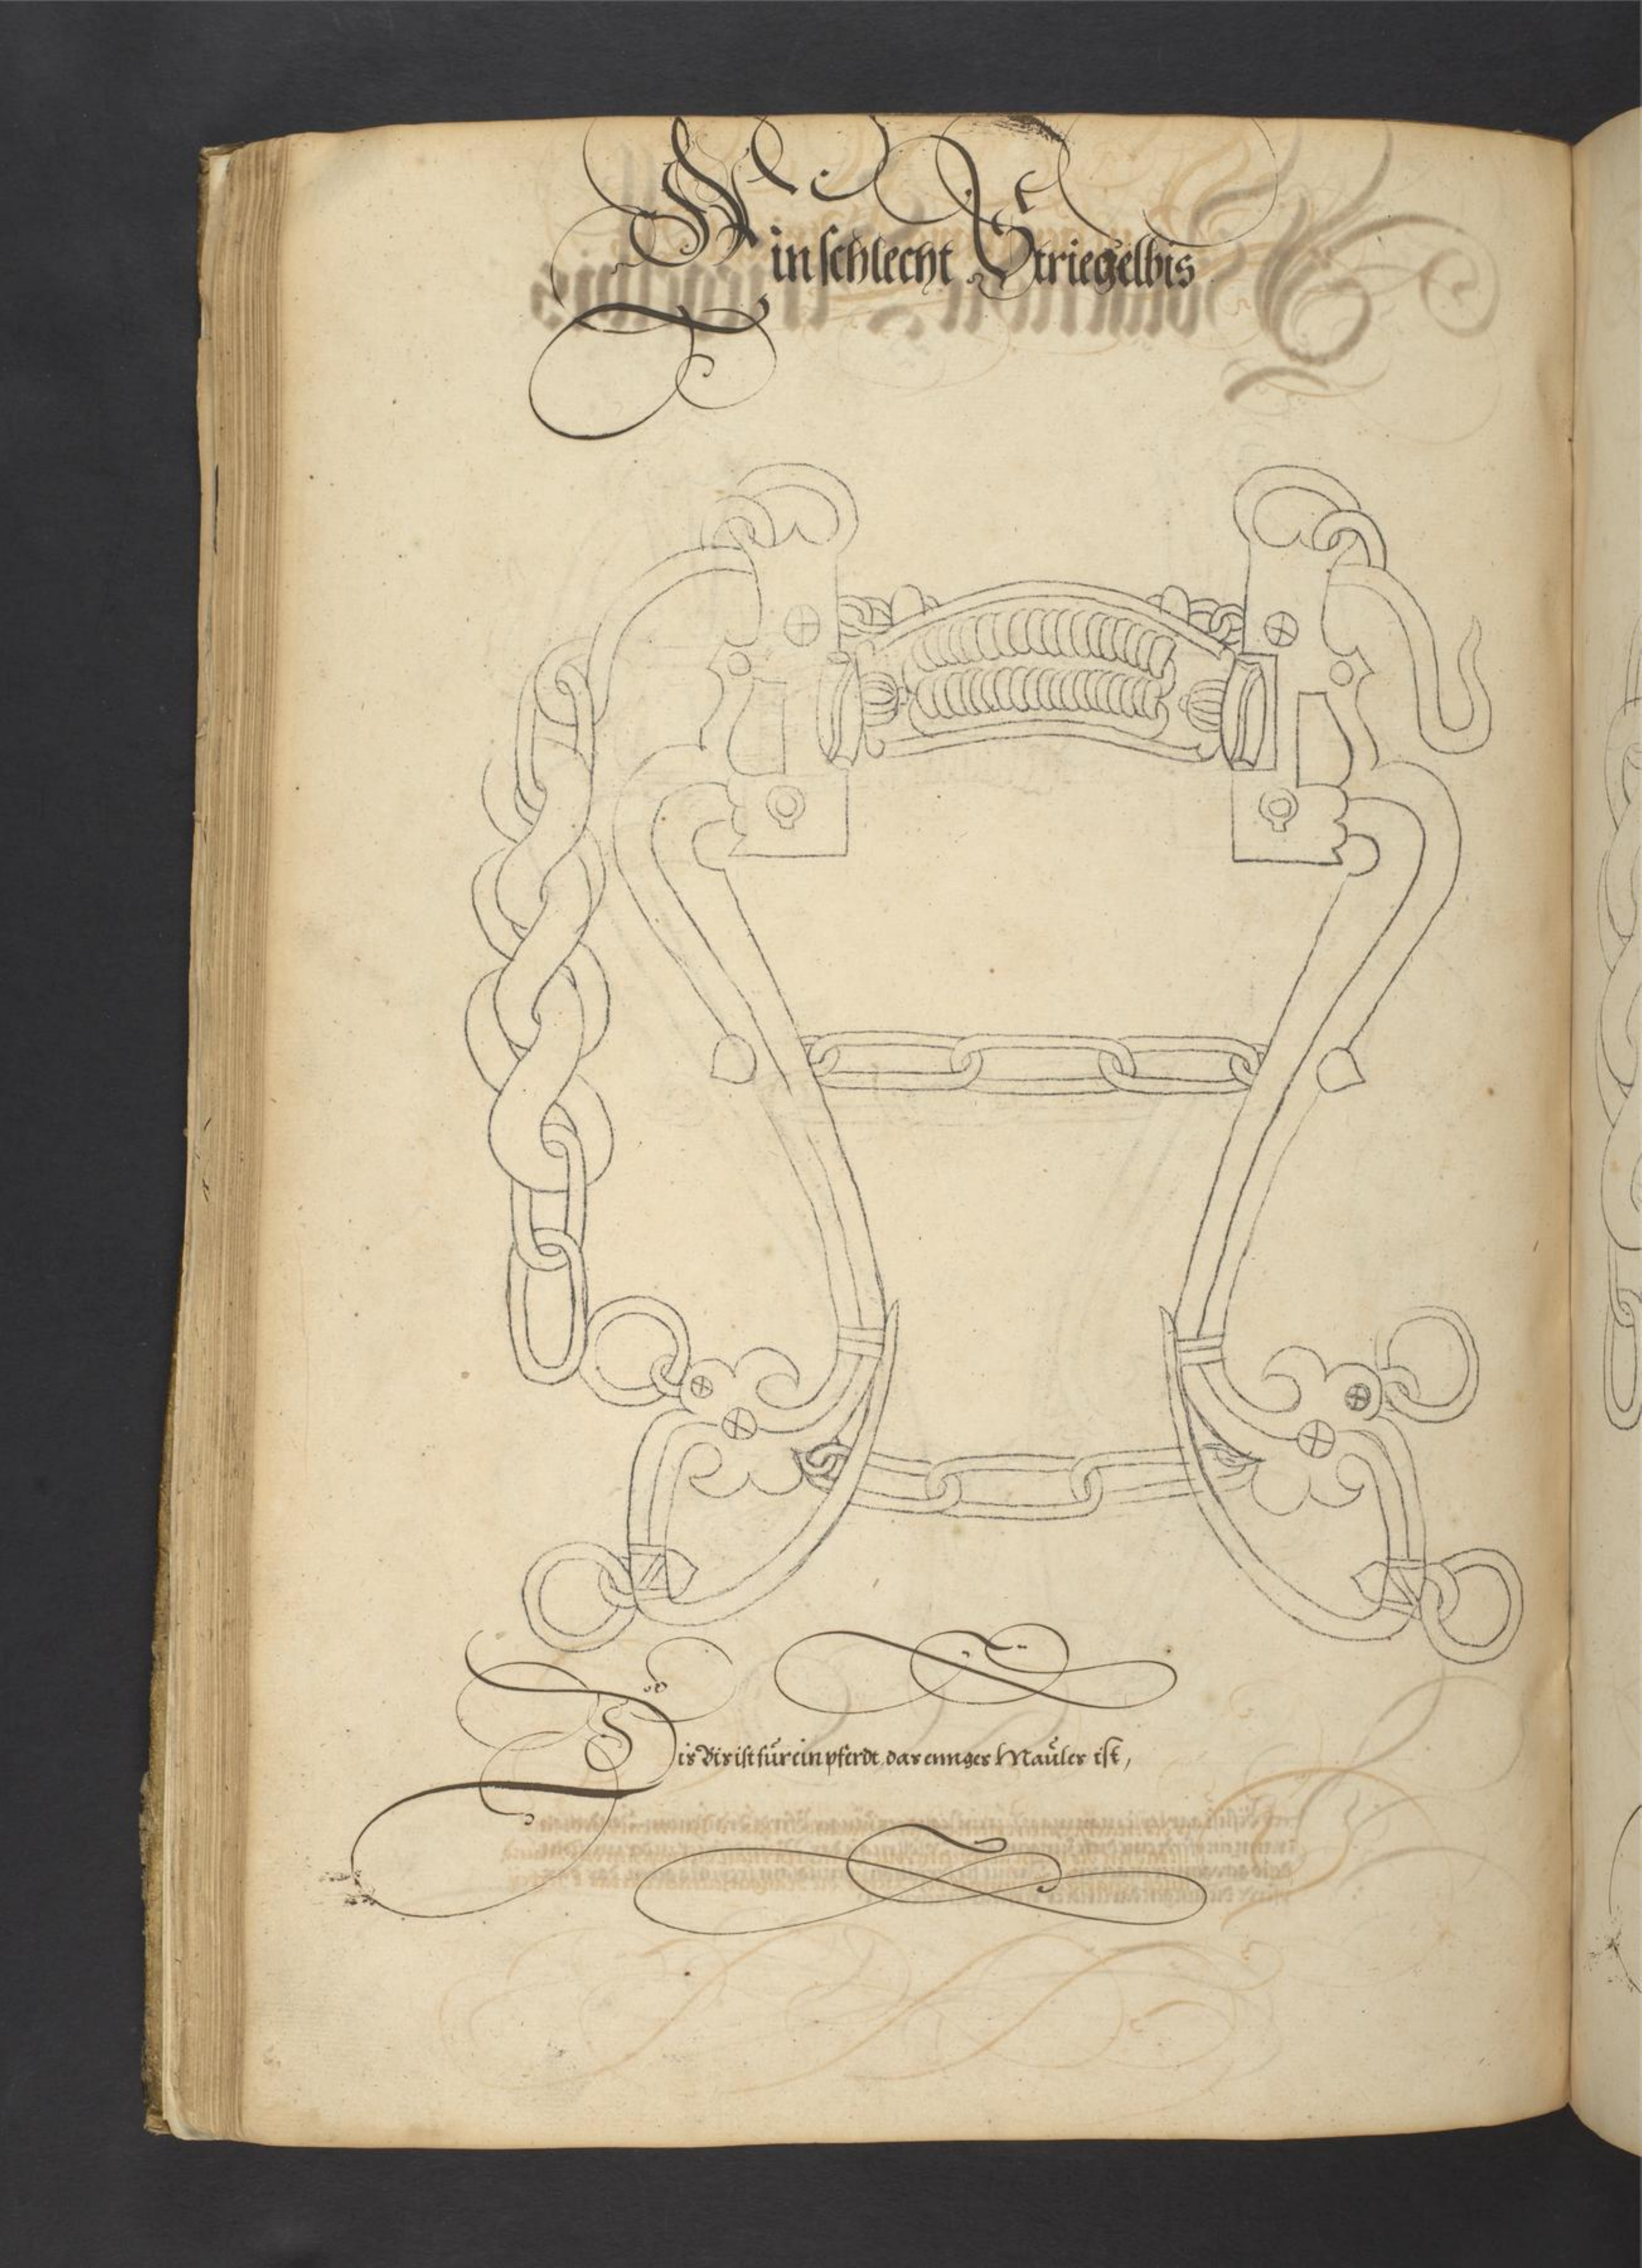 Ein schlecht Striegelbis
Dis Bis ist für ein pferdt, das ennges Maüles ist,